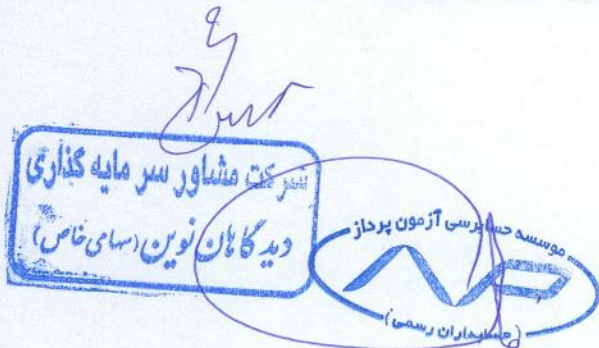 شرکت مشاور سرمایه گذاری
دیدگاهان نوین (سهامی خاص)
موسسه حسابرسی آزمون پرداز
(حسابداران رسمی)